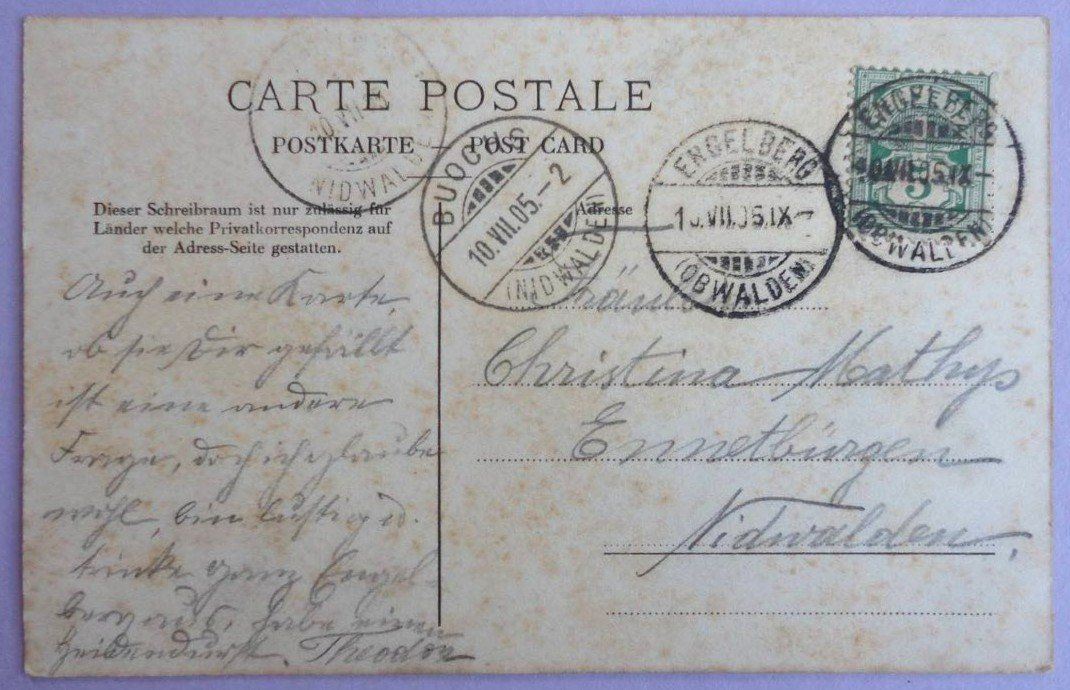 CARTE POSTALE
POSTKARTE — POST CARD
NIDWALDEN
BUOCHS
10.VII.05.-2
(NIDWALDEN)
ENGELBERG
10.VII.05.IX-
(OBWALDEN)
ENGELBERG
10.VII.05.IX-
(OBWALDEN)
5
Dieser Schreibraum ist nur zulässig für
Länder welche Privatkorrespondenz auf
der Adress-Seite gestatten.
Adresse
Auch eine Karte,
ob sie Dir gefällt
ist eine andere
Frage, doch ich glaube
wohl, bin lustig u.
trinke ganz Engel-
berg aus, habe einen
Heidendurst. Theodor
Christina Mathys
Ennetbürgen
Nidwalden.